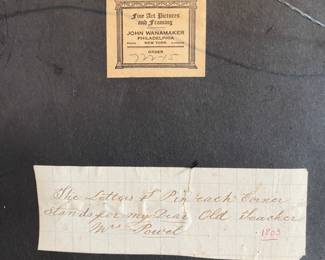 Fine Art Pictures
and Framing
JOHN WANAMAKER
PHILADELPHIA
PARIS NEW YORK LONDON
ORDER
The Letters P in each Corner
Stands for my Dear Old Teacher
Mrs Powel
1803